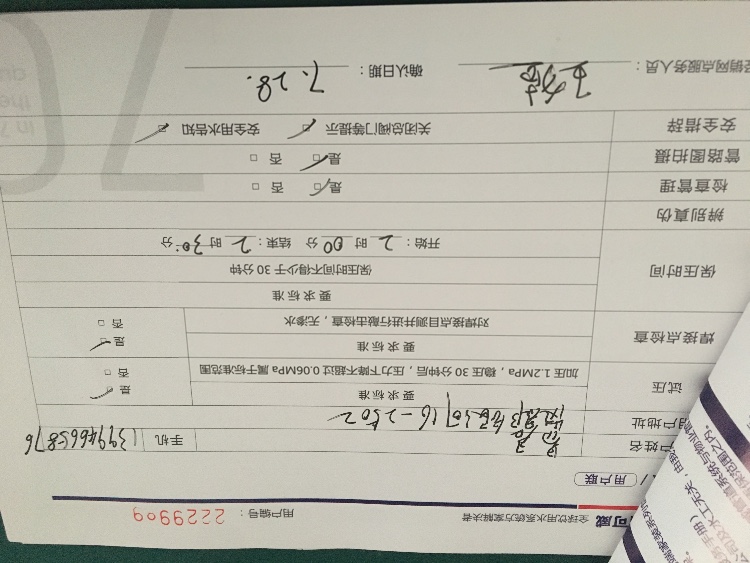 可威 全球饮用水系统方案解决者 用户编号：2229909
用户联
户姓名 手机
用户地址 16-2502
试压 要求标准 是
加压1.2MPa，稳压30分钟后，压力下降不超过0.06MPa属于标准范围 否
焊接点检查 要求标准 是
对焊接点目测并进行敲击检查，无渗水 否
保压时间 要求标准
保压时间不得少于30分钟
开始：2时00分 结束：2时30分
辨别真伪
检查管理 是 否
管路图拍摄 是 否
安全措辞 关闭总阀门等提示 安全用水告知
经销网点服务人员： 确认日期：7.28.